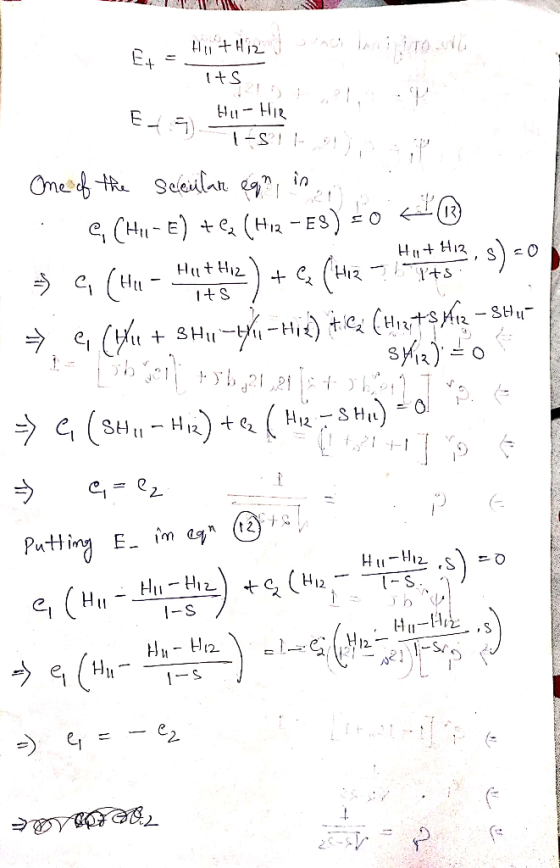 E₊ = (H₁₁ + H₁₂)/(1+S)
E₋ ⇒ (H₁₁ − H₁₂)/(1−S)
One of the secular eqⁿ, is
C₁ (H₁₁ − E) + C₂ (H₁₂ − ES) = 0 ← (12)
⇒ C₁ (H₁₁ − (H₁₁ + H₁₂)/(1+S)) + C₂ (H₁₂ − (H₁₁ + H₁₂)/(1+S) . S) = 0
⇒ C₁ (H₁₁ + SH₁₁ − H₁₁ − H₁₂) + C₂ (H₁₂ + SH₁₂ − SH₁₁ −
SH₁₂) = 0
⇒ C₁ (SH₁₁ − H₁₂) + C₂ (H₁₂ − SH₁₁) = 0
⇒ C₁ = C₂
Putting E₋ in eqⁿ (12)
C₁ (H₁₁ − (H₁₁ − H₁₂)/(1−S)) + C₂ (H₁₂ − (H₁₁ − H₁₂)/(1−S) . S) = 0
⇒ C₁ (H₁₁ − (H₁₁ − H₁₂)/(1−S)) = − C₂ (H₁₂ − (H₁₁ − H₁₂)/(1−S) . S)
⇒ C₁ = − C₂